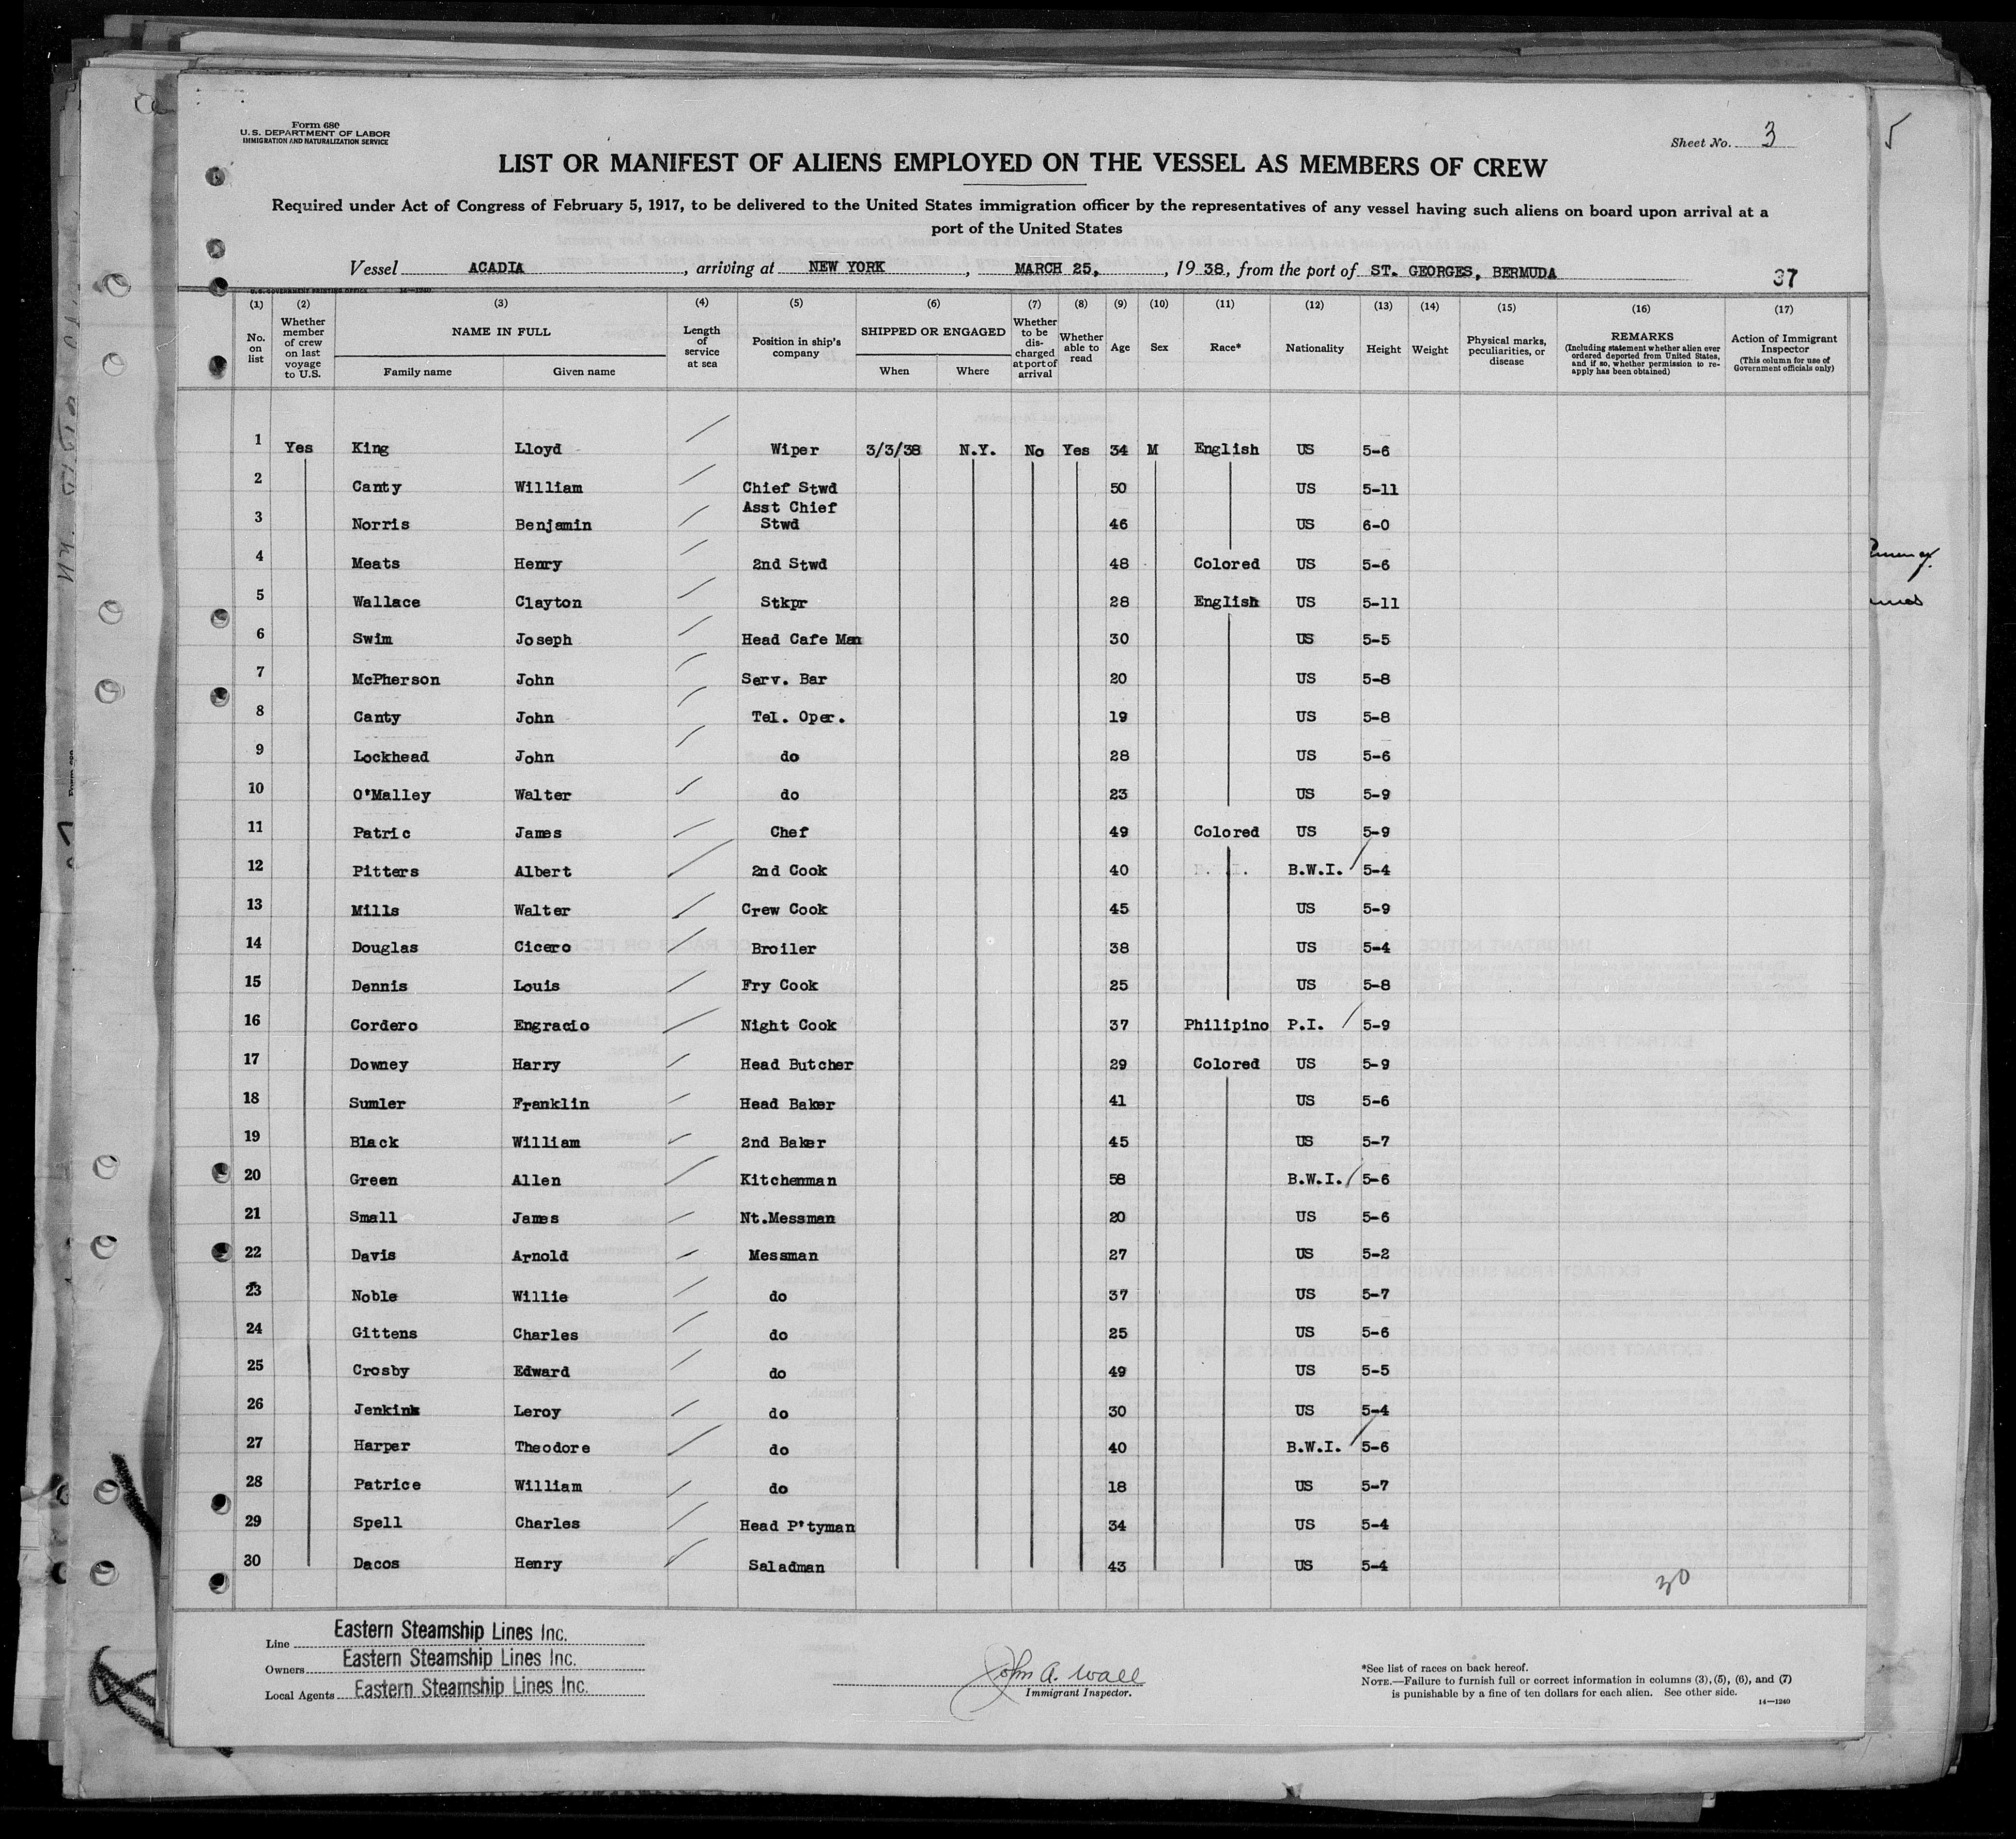 Form 680
U.S. DEPARTMENT OF LABOR
IMMIGRATION AND NATURALIZATION SERVICE
Sheet No. 3
5
LIST OR MANIFEST OF ALIENS EMPLOYED ON THE VESSEL AS MEMBERS OF CREW
Required under Act of Congress of February 5, 1917, to be delivered to the United States immigration officer by the representatives of any vessel having such aliens on board upon arrival at a
port of the United States
Vessel ACADIA, arriving at NEW YORK, MARCH 25, , 19 38, from the port of ST. GEORGES, BERMUDA
37
U.S. GOVERNMENT PRINTING OFFICE 14—1240
(1) (2) (3) (4) (5) (6) (7) (8) (9) (10) (11) (12) (13) (14) (15) (16) (17)
No. on list
Whether member of crew on last voyage to U.S.
NAME IN FULL
Family name Given name
Length of service at sea
Position in ship's company
SHIPPED OR ENGAGED
When Where
Whether to be dis-charged at port of arrival
Whether able to read
Age
Sex
Race*
Nationality
Height
Weight
Physical marks, peculiarities, or disease
REMARKS
(Including statement whether alien ever ordered deported from United States, and if so, whether permission to re-apply has been obtained)
Action of Immigrant Inspector
(This column for use of Government officials only)
1 Yes King Lloyd Wiper 3/3/38 N.Y. No Yes 34 M English US 5-6
2 Canty William Chief Stwd 50 US 5-11
3 Norris Benjamin Asst Chief Stwd 46 US 6-0
4 Meats Henry 2nd Stwd 48 Colored US 5-6
5 Wallace Clayton Stkpr 28 English US 5-11
6 Swim Joseph Head Cafe Man 30 US 5-5
7 McPherson John Serv. Bar 20 US 5-8
8 Canty John Tel. Oper. 19 US 5-8
9 Lockhead John do 28 US 5-6
10 O'Malley Walter do 23 US 5-9
11 Patric James Chef 49 Colored US 5-9
12 Pitters Albert 2nd Cook 40 B.W.I. 5-4
13 Mills Walter Crew Cook 45 US 5-9
14 Douglas Cicero Broiler 38 US 5-4
15 Dennis Louis Fry Cook 25 US 5-8
16 Cordero Engracio Night Cook 37 Philipino P.I. 5-9
17 Downey Harry Head Butcher 29 Colored US 5-9
18 Sumler Franklin Head Baker 41 US 5-6
19 Black William 2nd Baker 45 US 5-7
20 Green Allen Kitchenman 58 B.W.I. 5-6
21 Small James Nt.Messman 20 US 5-6
22 Davis Arnold Messman 27 US 5-2
23 Noble Willie do 37 US 5-7
24 Gittens Charles do 25 US 5-6
25 Crosby Edward do 49 US 5-5
26 Jenkins Leroy do 30 US 5-4
27 Harper Theodore do 40 B.W.I. 5-6
28 Patrice William do 18 US 5-7
29 Spell Charles Head P'tyman 34 US 5-4
30 Dacos Henry Saladman 43 US 5-4
30
Line Eastern Steamship Lines Inc.
Owners Eastern Steamship Lines Inc.
Local Agents Eastern Steamship Lines Inc.
John A. Wall
Immigrant Inspector.
*See list of races on back hereof.
NOTE.—Failure to furnish full or correct information in columns (3), (5), (6), and (7)
is punishable by a fine of ten dollars for each alien. See other side.
14—1240